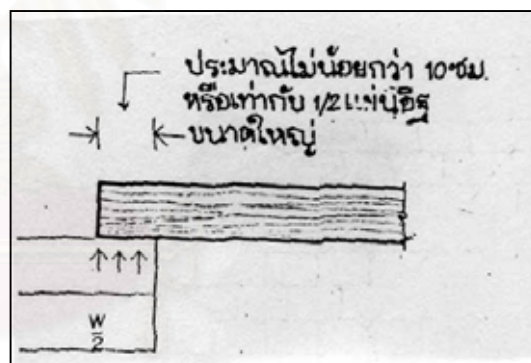 ประมาณไม่น้อยกว่า 10 ซม.
หรือเท่ากับ 1/2 แผ่นอิฐ
ขนาดใหญ่
W
2